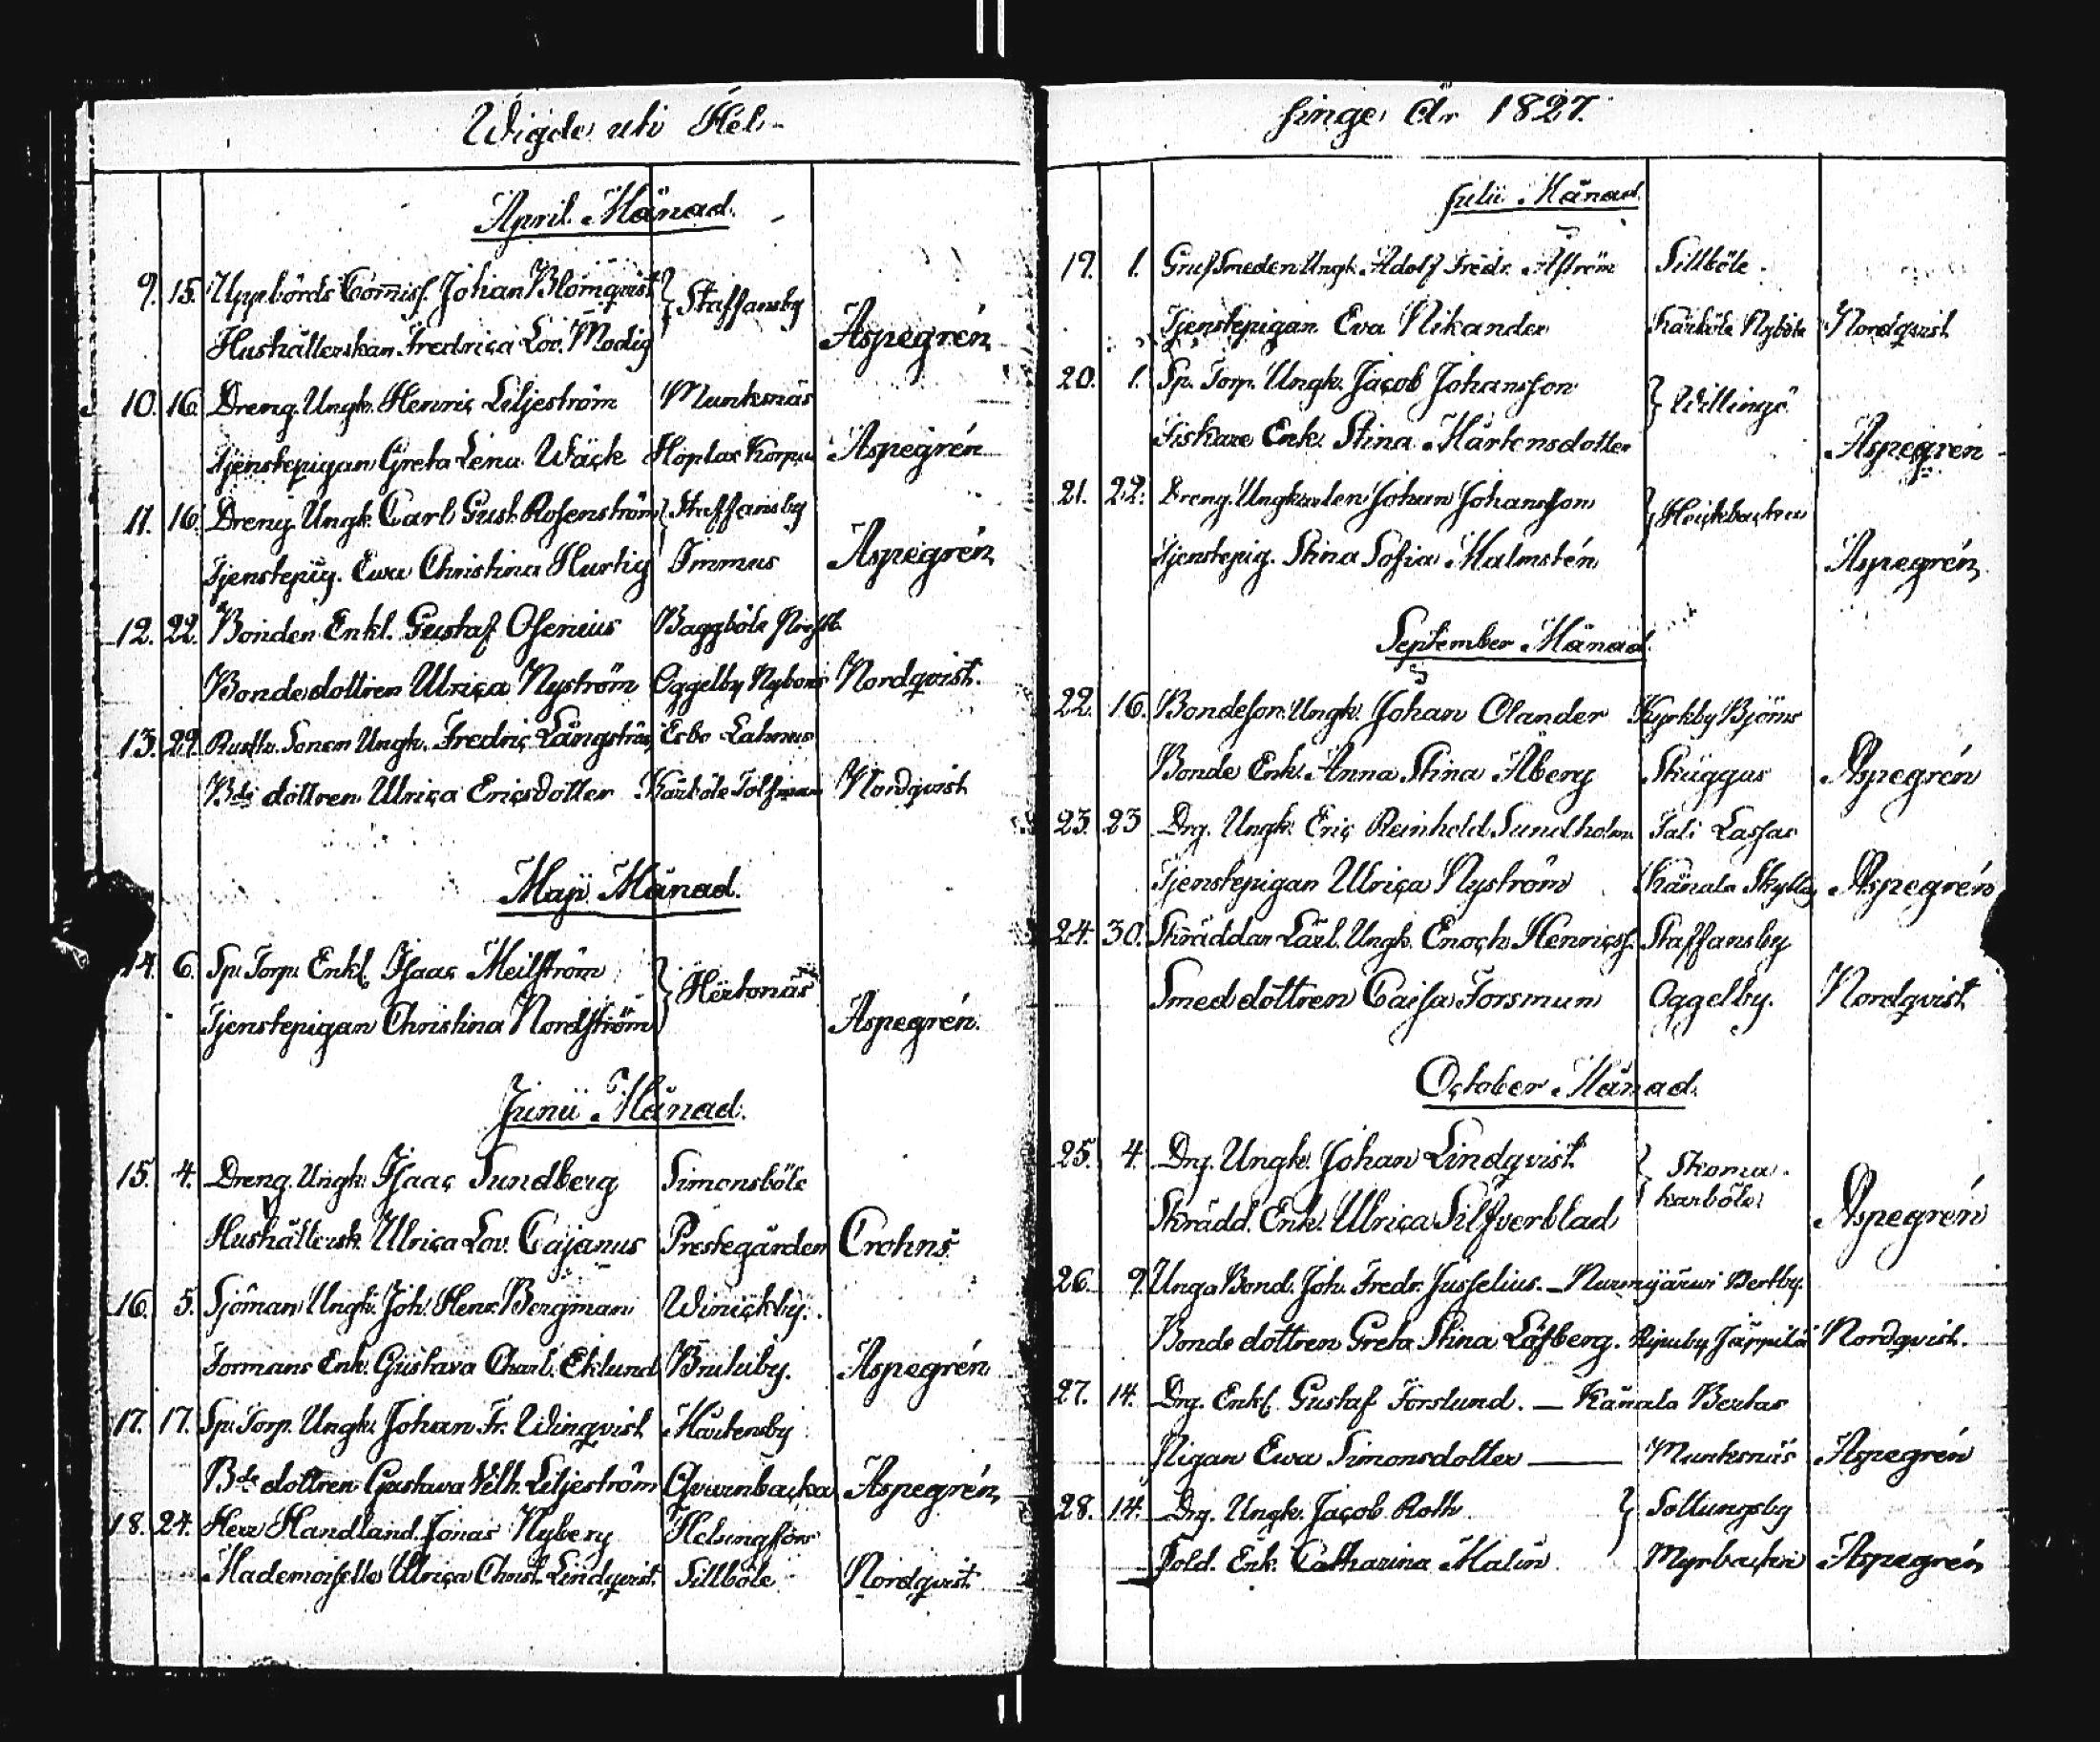 Wigde uti Hel-
April Månad.
9. 15. Uppbörds Com̄iss. Johan Blomqvist } Staffansby
Hushållerskan Fredrica Lov. Modig Aspegrén
10. 16. Dreng. Ungk. Henric Liljeström Munksnäs
Tjenstepigan Greta Lena Wäck Hoplax Korpas Aspegrén
11. 16. Dreng. Ungk. Carl Gust. Rosenström Staffansby
Tjenstepig. Ewa Christina Hurtig Immus Aspegrén
12. 22. Bonden Enkl. Gustaf Osenius Baggböle
Bondedottren Ulrica Nyström Oggelby Nybons Nordqvist.
13. 29. Rusth. Sonen Ungk. Fredric Långström Esbo Lahnus
Bde dottren Ulrica Ericsdotter Kårböle Nordqvist
Maji Månad.
14. 6. Sp. Torp. Enkl. Isaac Meilström } Hertonäs
Tjenstepigan Christina Nordström Aspegrén.
Junii Månad.
15. 4. Dreng. Ungk. Isaac Sundberg Simonsböle
Hushållersk. Ulrica Lov. Cajanus Prestegården Crohns
16. 5. Sjöman Ungk. Joh. Henr. Bergman Winickby.
Formans Enk. Gustava Charl. Eklund Brutuby. Aspegrén
17. 17. Sp. Torp. Ungk. Johan Fr. Winqvist Mårtensby
Bde dottren Gustava Vilh. Liljeström Qvarnbacka Aspegrén
18. 24. Herr Handland. Jonas Nyberg Helsingfors
Mademoiselle Ulrica Christ. Lindqvist Sillböle Nordqvist
singe År 1827.
Julii Månad.
19. 1. Grufsmeden Ungk. Adolf Fredr. Åström Sillböle.
Tjenstepigan Eva Nikander Kårböle Nyböle Nordqvist
20. 1. Sp. Torp. Ungk. Jacob Johansson } Willinge
Fiskare Enk. Stina Mårtensdotter Aspegrén
21. 22. Dreng. Ungkarlen Johan Johansson } Heickbacken
Tjenstepig. Stina Sofia Malmstén Aspegrén
September Månad.
22. 16. Bondeson Ungk. Johan Olander Kyrkby Björns
Bonde Enk. Anna Stina Åberg Skuggas Aspegrén
23. 23 Drg. Ungk. Eric Reinhold Sundholm Tali Lassas
Tjenstepigan Ulrica Nyström Kånala Aspegrén
24. 30. Skräddar Lärl. Ungk. Enoch Henricss. Staffansby
Smeddottren Caisa Forsman Oggelby. Nordqvist
October Månad.
25. 4. Drg. Ungk. Johan Lindqvist } Skoma-
karböle
Skrädd. Enk. Ulrica Silfverblad Aspegrén
26. 9. Unga Bond. Joh. Fredr. Juselius. — Nurmijärwi
Bonde dottren Greta Stina Löfberg. Ripuby Jäppilä Nordqvist.
27. 14. Drg. Enkl. Gustaf Forslund. — Kånala Bertas
Pigan Ewa Simonsdotter — Munksnäs Aspegrén
28. 14. Drg. Ungk. Jacob Roth } Sottungsby
Sold. Enk. Catharina Malin Myrbacka Aspegrén